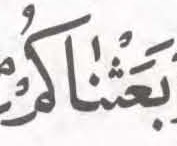 بَعَثْنٰاكُمْ